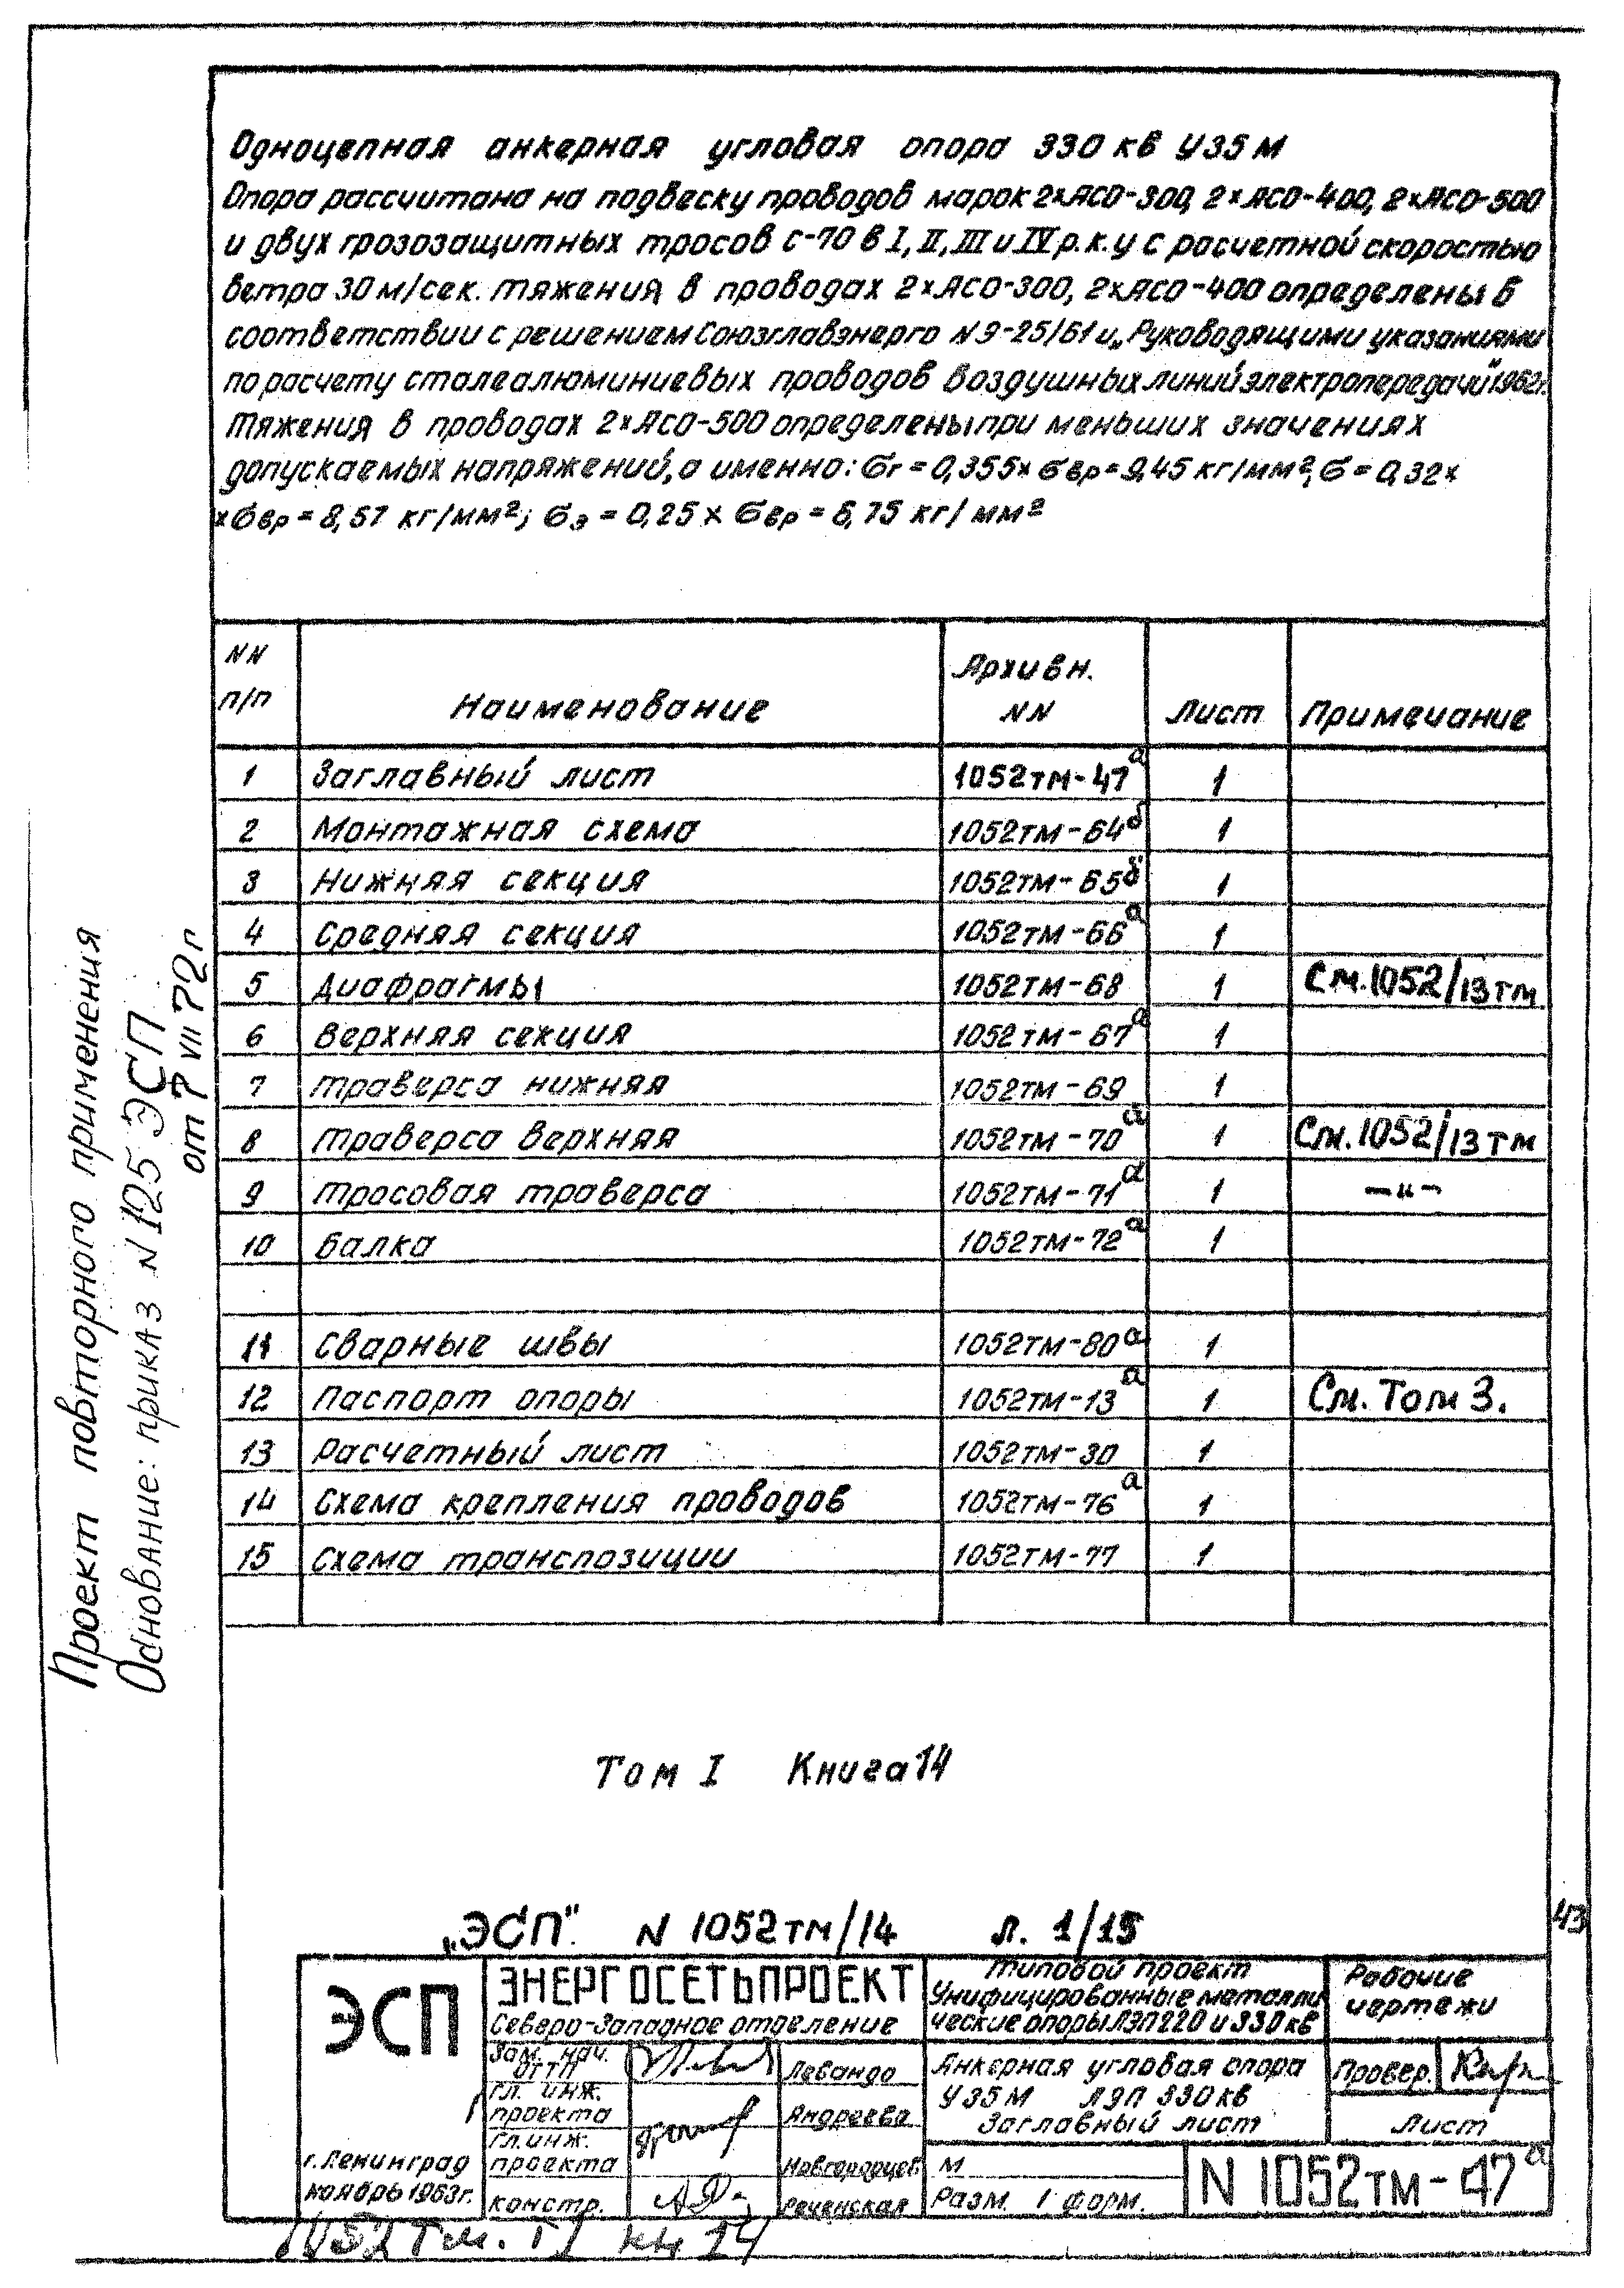 Одноцепная анкерная угловая опора 330 кв У35М
Опора рассчитана на подвеску проводов марок 2×АСО-300, 2×АСО-400, 2×АСО-500
и двух грозозащитных тросов С-70 в I, II, III и IV р.к.у с расчетной скоростью
ветра 30 м/сек. Тяжения в проводах 2×АСО-300, 2×АСО-400 определены в
соответствии с решением Союзглавэнерго N Э-25/61 и „Руководящими указаниями
по расчету сталеалюминиевых проводов воздушных линий электропередачи" 1962г.
Тяжения в проводах 2×АСО-500 определены при меньших значениях
допускаемых напряжений, а именно: σг = 0,355× σвр = 9,45 кг/мм², σ- = 0,32×
×σвр = 8,57 кг/мм²; σэ = 0,25 × σвр = 6,75 кг/мм²
NN п/п Наименование Архивн. NN Лист Примечание
1 Заглавный лист 1052тм-47а 1
2 Монтажная схема 1052тм-64б 1
3 Нижняя секция 1052тм-65б 1
4 Средняя секция 1052тм-66а 1
5 Диафрагмы 1052тм-68 1 См.1052/13тм
6 Верхняя секция 1052тм-67а 1
7 Траверса нижняя 1052тм-69 1
8 Траверса верхняя 1052тм-70а 1 См.1052/13тм
9 Тросовая траверса 1052тм-71а 1 —"—
10 Балка 1052тм-72а 1
11 Сварные швы 1052тм-80а 1
12 Паспорт опоры 1052тм-13а 1 См. Том 3.
13 Расчетный лист 1052тм-30 1
14 Схема крепления проводов 1052тм-76а 1
15 Схема транспозиции 1052тм-77 1
Проект повторного применения
Основание: приказ N 125 ЭСП
от 7 VII 72г
Том I Книга 14
„ЭСП" N 1052тм/14 л. 1/15
43
ЭСП
г. Ленинград
ноябрь 1963г.
ЭНЕРГОСЕТЬПРОЕКТ
Северо-Западное отделение
Зам. нач. ОТТП Левандо
Гл. инж. проекта Андреева
Гл. инж. проекта Новгородцев
констр. Реченская
Типовой проект
Унифицированные металли
ческие опоры ЛЭП 220 и 330 кв
Анкерная угловая опора
У35М ЛЭП 330кв
Заглавный лист
М
Разм. 1 форм.
Рабочие
чертежи
Провер.
Лист
N 1052тм-47а
1052тм. Т I кн 14